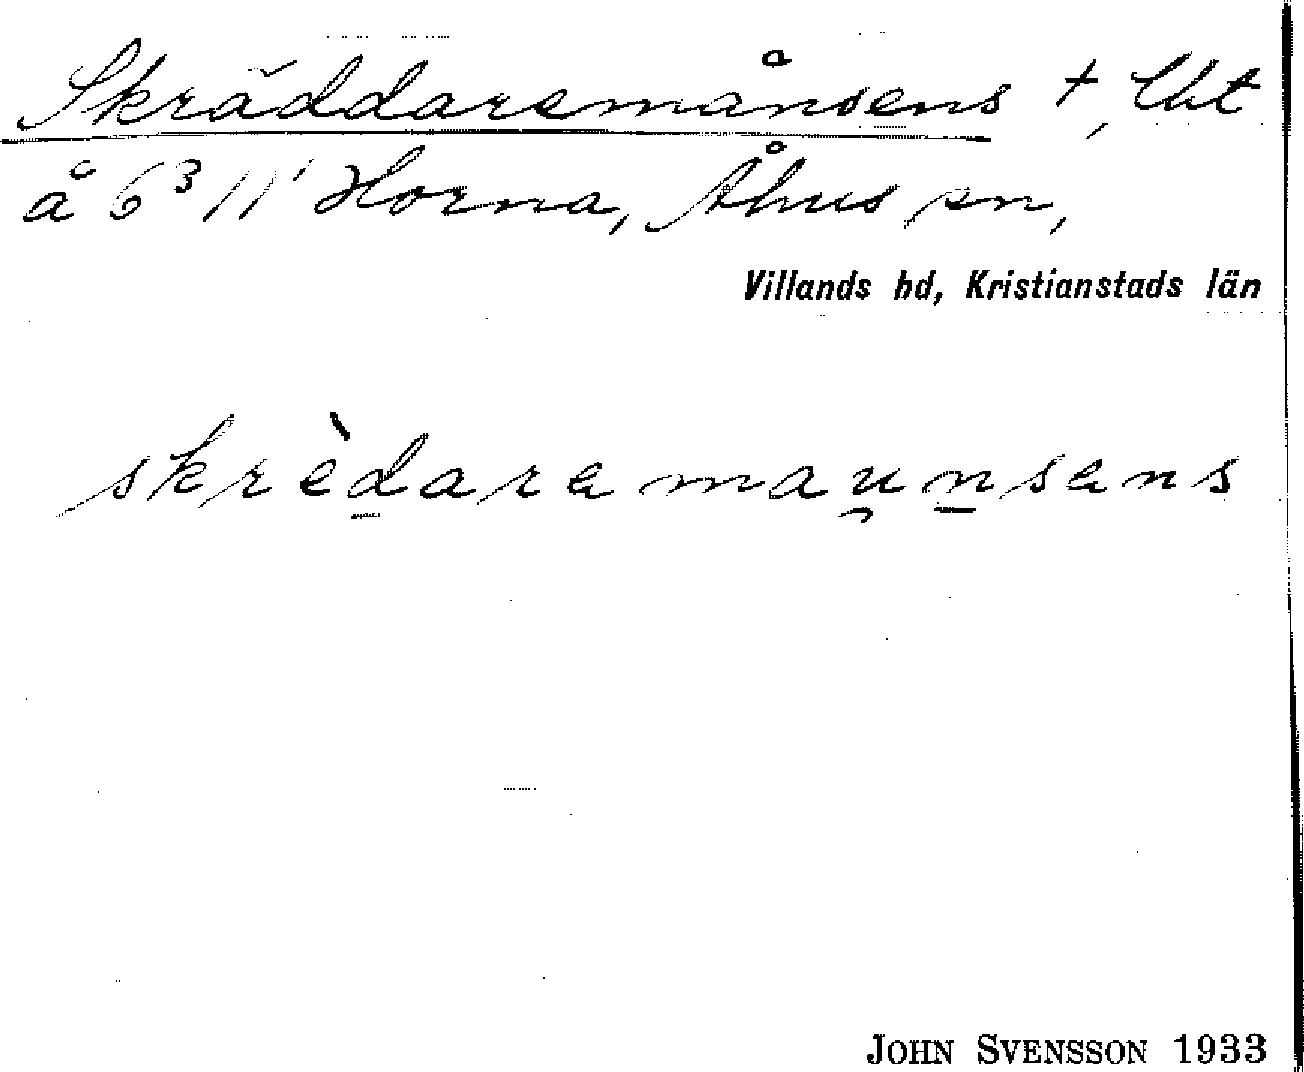 Skräddaremånsens †, Lht
å 6³ 11¹ Horna, Åhus sn,
Villands hd, Kristianstads län
skrèdaremau̯nsens
JOHN SVENSSON 1933